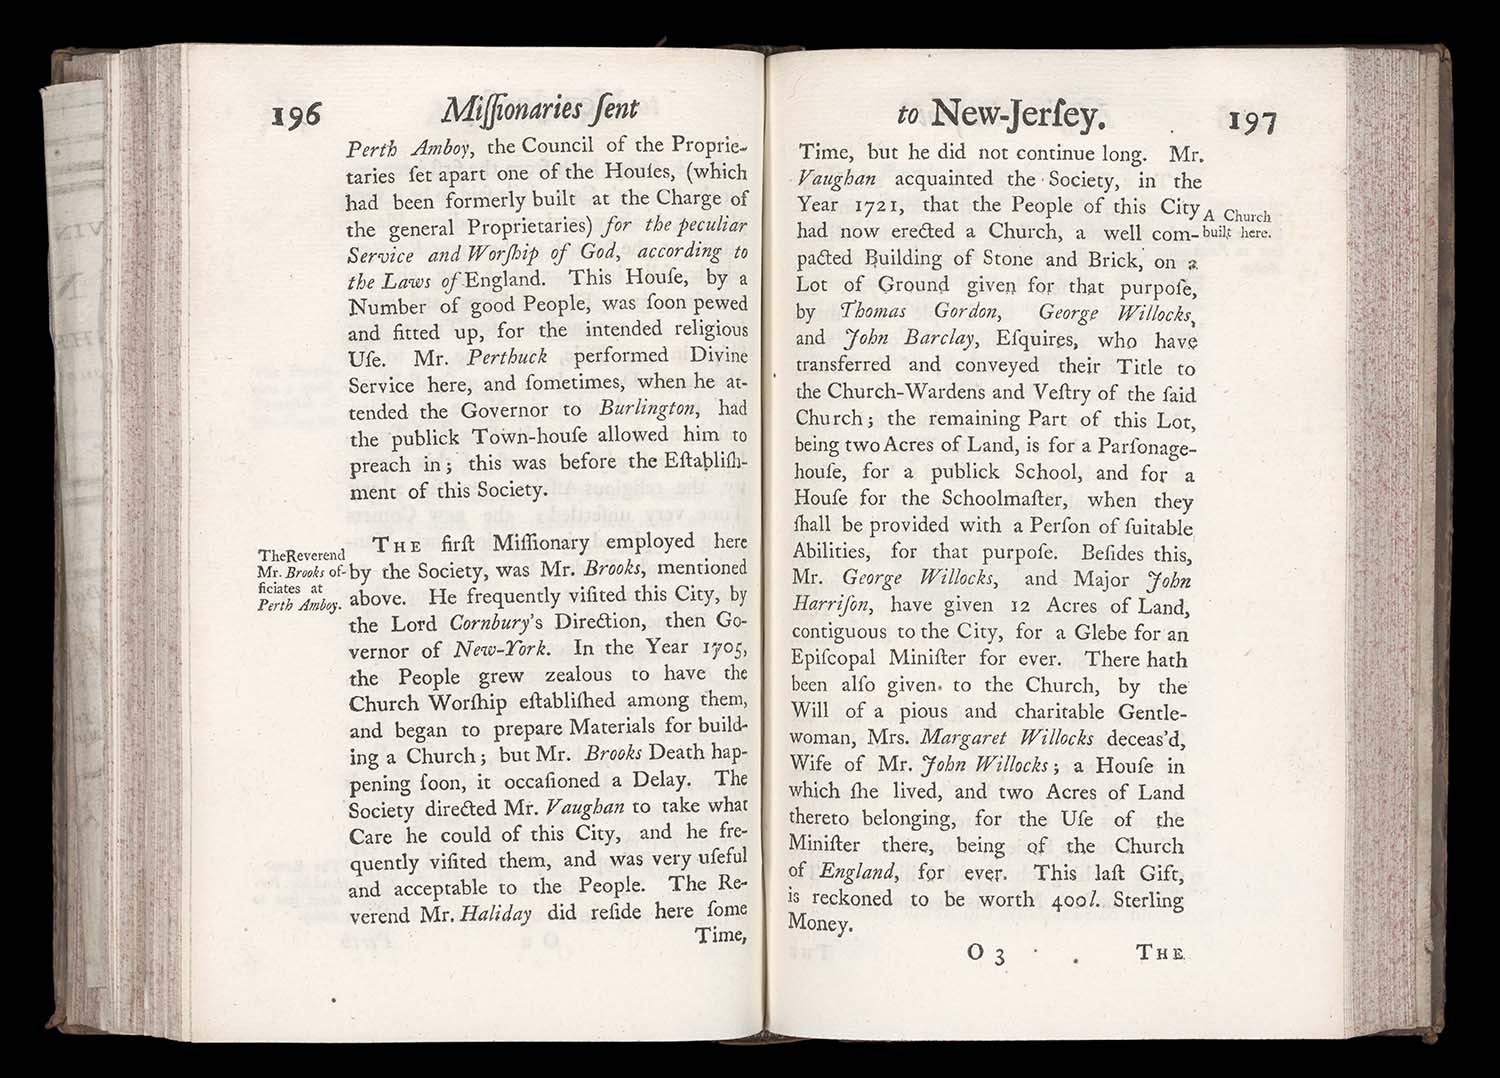 196 Miſſionaries ſent
Perth Amboy, the Council of the Proprie-
taries ſet apart one of the Houſes, (which
had been formerly built at the Charge of
the general Proprietaries) for the peculiar
Service and Worſhip of God, according to
the Laws of England. This Houſe, by a
Number of good People, was ſoon pewed
and fitted up, for the intended religious
Uſe. Mr. Perthuck performed Divine
Service here, and ſometimes, when he at-
tended the Governor to Burlington, had
the publick Town-houſe allowed him to
preach in; this was before the Eſtabliſh-
ment of this Society.
TheReverend
Mr. Brooks of-
ficiates at
Perth Amboy.
THE firſt Miſſionary employed here
by the Society, was Mr. Brooks, mentioned
above. He frequently viſited this City, by
the Lord Cornbury's Direction, then Go-
vernor of New-York. In the Year 1705,
the People grew zealous to have the
Church Worſhip eſtabliſhed among them,
and began to prepare Materials for build-
ing a Church; but Mr. Brooks Death hap-
pening ſoon, it occaſioned a Delay. The
Society directed Mr. Vaughan to take what
Care he could of this City, and he fre-
quently viſited them, and was very uſeful
and acceptable to the People. The Re-
verend Mr. Haliday did reſide here ſome
Time,
to New-Jerſey. 197
Time, but he did not continue long. Mr.
Vaughan acquainted the Society, in the
Year 1721, that the People of this City
had now erected a Church, a well com-
A Church
built here.
pacted Building of Stone and Brick, on a
Lot of Ground given for that purpoſe,
by Thomas Gordon, George Willocks,
and John Barclay, Eſquires, who have
transferred and conveyed their Title to
the Church-Wardens and Veſtry of the ſaid
Church; the remaining Part of this Lot,
being two Acres of Land, is for a Parſonage-
houſe, for a publick School, and for a
Houſe for the Schoolmaſter, when they
ſhall be provided with a Perſon of ſuitable
Abilities, for that purpoſe. Beſides this,
Mr. George Willocks, and Major John
Harriſon, have given 12 Acres of Land,
contiguous to the City, for a Glebe for an
Epiſcopal Miniſter for ever. There hath
been alſo given to the Church, by the
Will of a pious and charitable Gentle-
woman, Mrs. Margaret Willocks deceas'd,
Wife of Mr. John Willocks; a Houſe in
which ſhe lived, and two Acres of Land
thereto belonging, for the Uſe of the
Miniſter there, being of the Church
of England, for ever. This laſt Gift,
is reckoned to be worth 400l. Sterling
Money.
O 3 THE